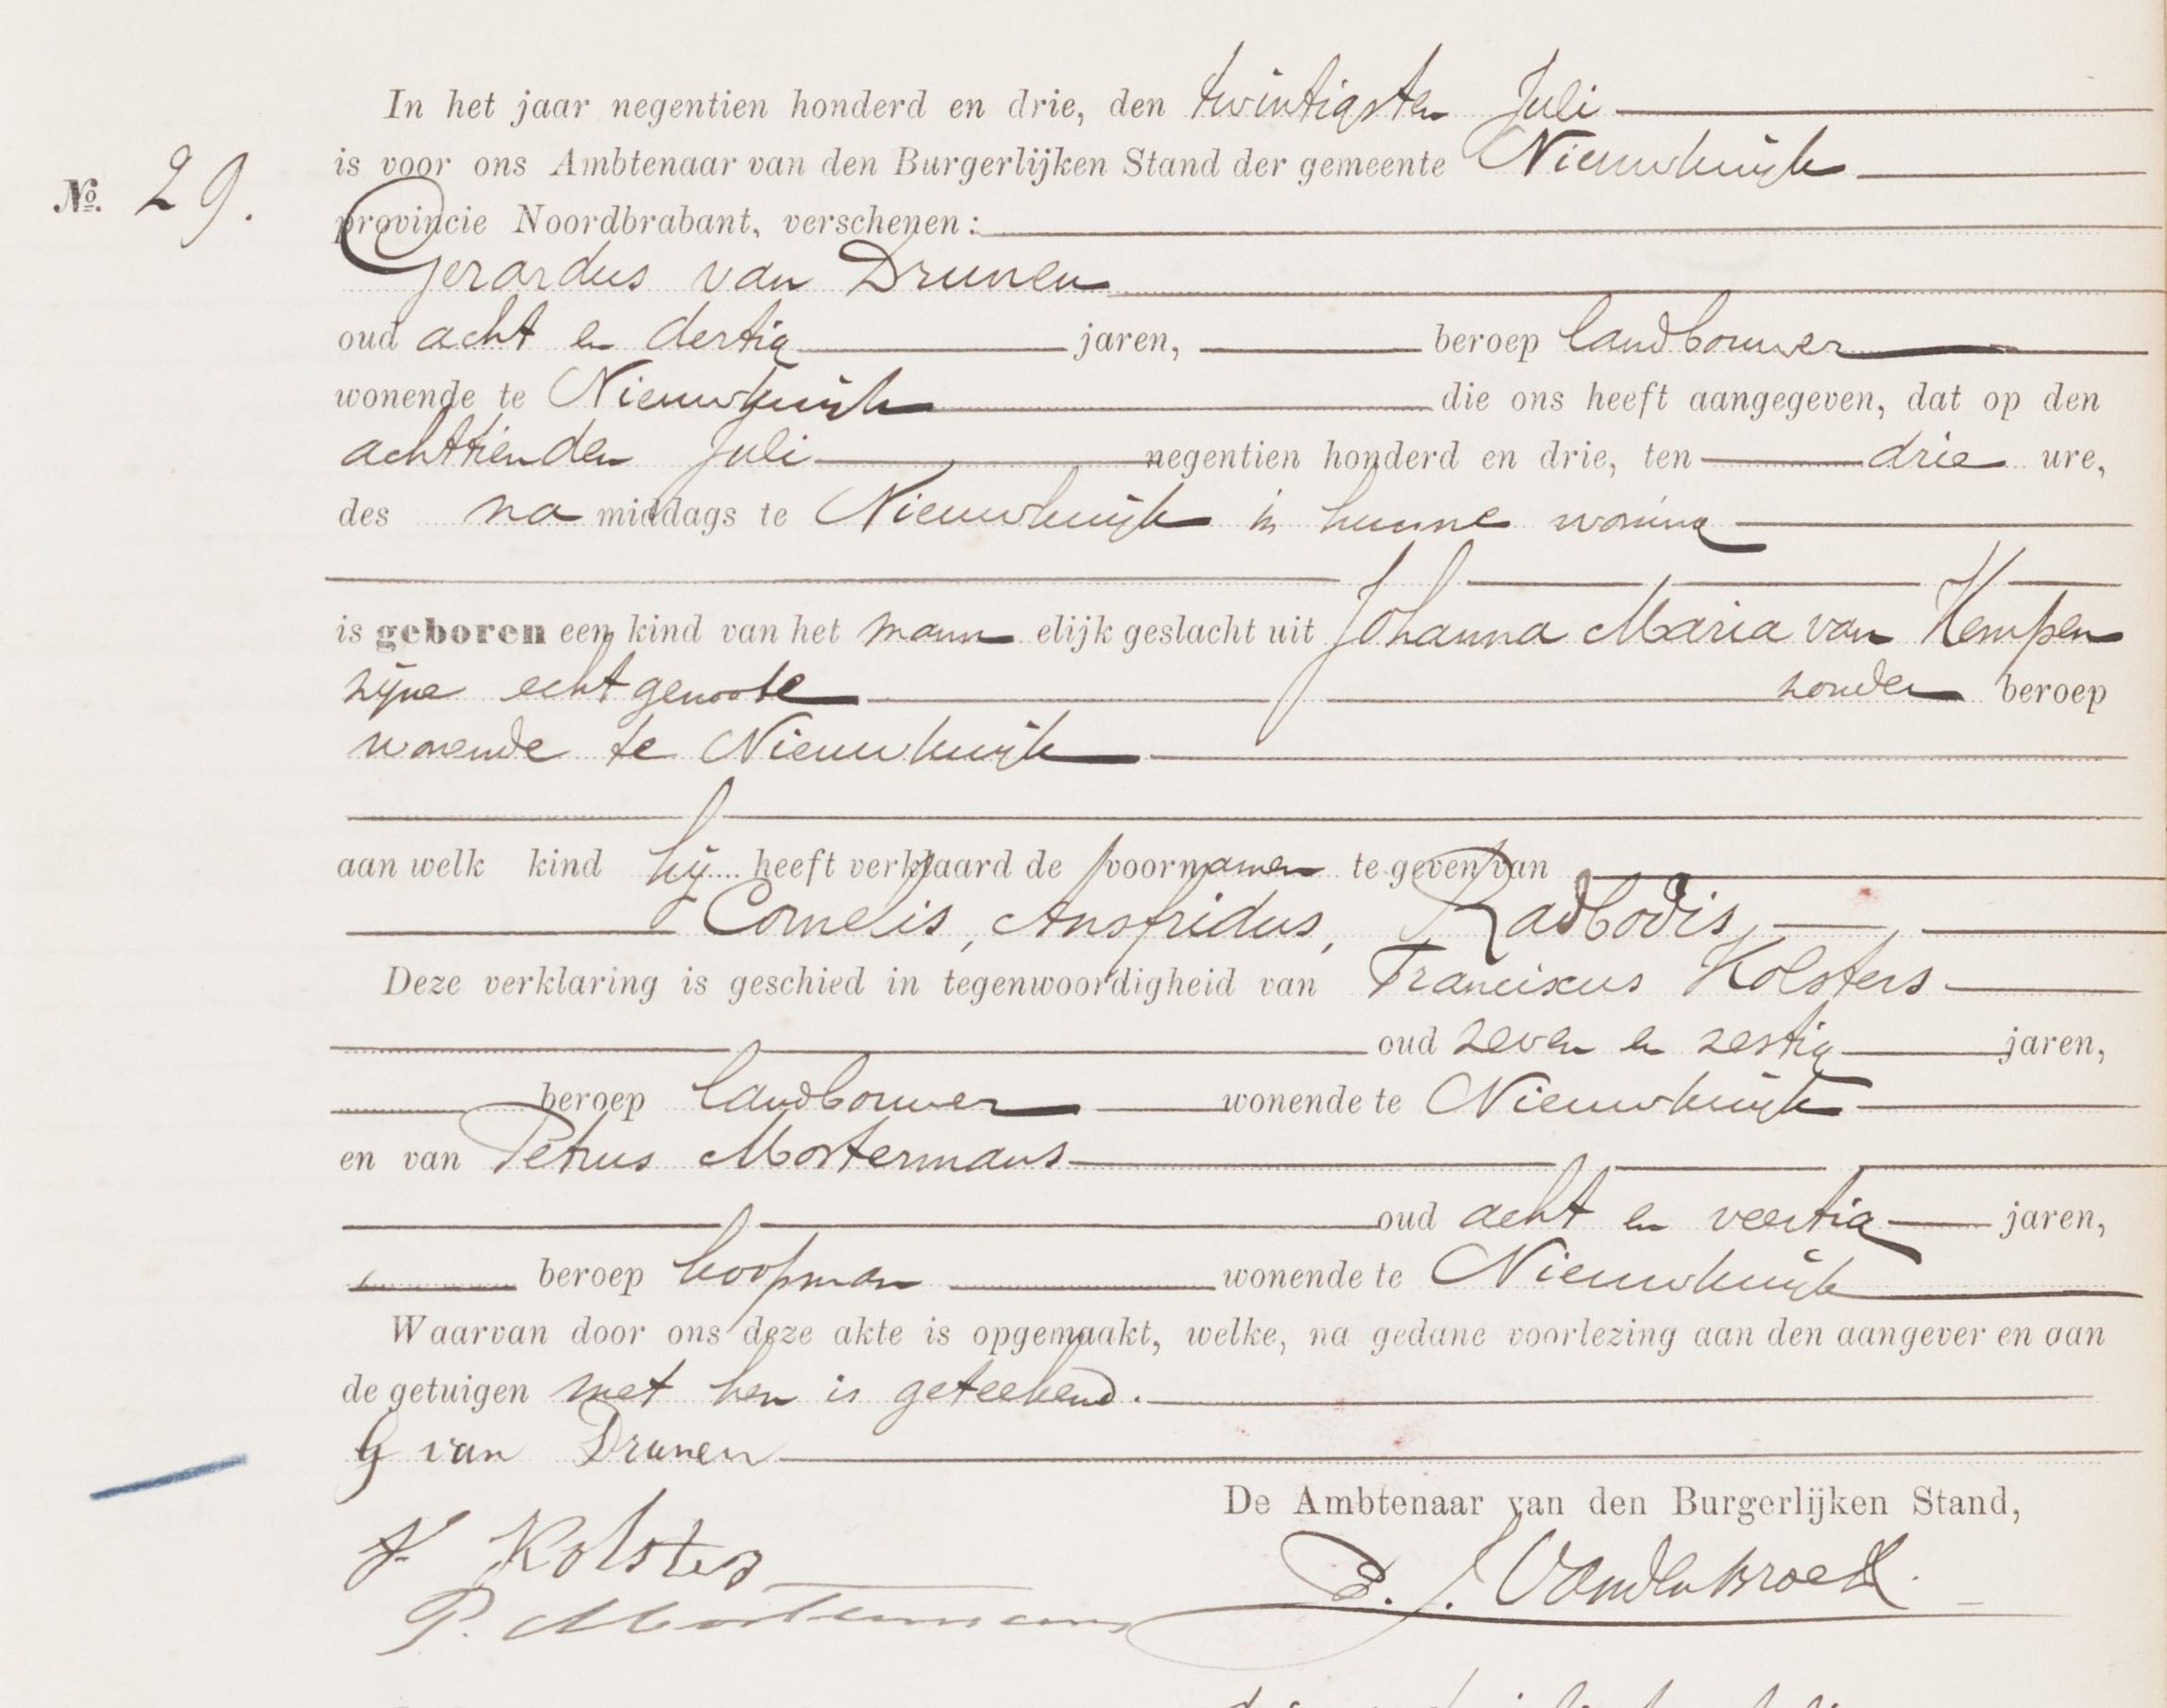 In het jaar negentien honderd en drie, den twintigsten Juli
is voor ons Ambtenaar van den Burgerlijken Stand der gemeente Nieuwkuijk
No. 29.
provincie Noordbrabant, verschenen:
Gerardus van Drunen
oud acht en dertig jaren, beroep landbouwer
wonende te Nieuwkuijk die ons heeft aangegeven, dat op den
achttienden Juli negentien honderd en drie, ten drie ure,
des na middags te Nieuwkuijk in hunne woning
is geboren een kind van het mann elijk geslacht uit Johanna Maria van Kempen
zijne echtgenoote zonder beroep
wonende te Nieuwkuijk
aan welk kind hij heeft verklaard de voornamen te geven van
Cornelis, Ansfridus, Radbodis,
Deze verklaring is geschied in tegenwoordigheid van Franciscus Kolsters
oud zeven en zestig jaren,
beroep landbouwer wonende te Nieuwkuijk
en van Petrus Mostermans
oud acht en veertig jaren,
beroep koopman wonende te Nieuwkuijk
Waarvan door ons deze akte is opgemaakt, welke, na gedane voorlezing aan den aangever en aan
de getuigen met hen is geteekend.
G van Drunen
De Ambtenaar van den Burgerlijken Stand,
F. Kolsters
P. Mostermans